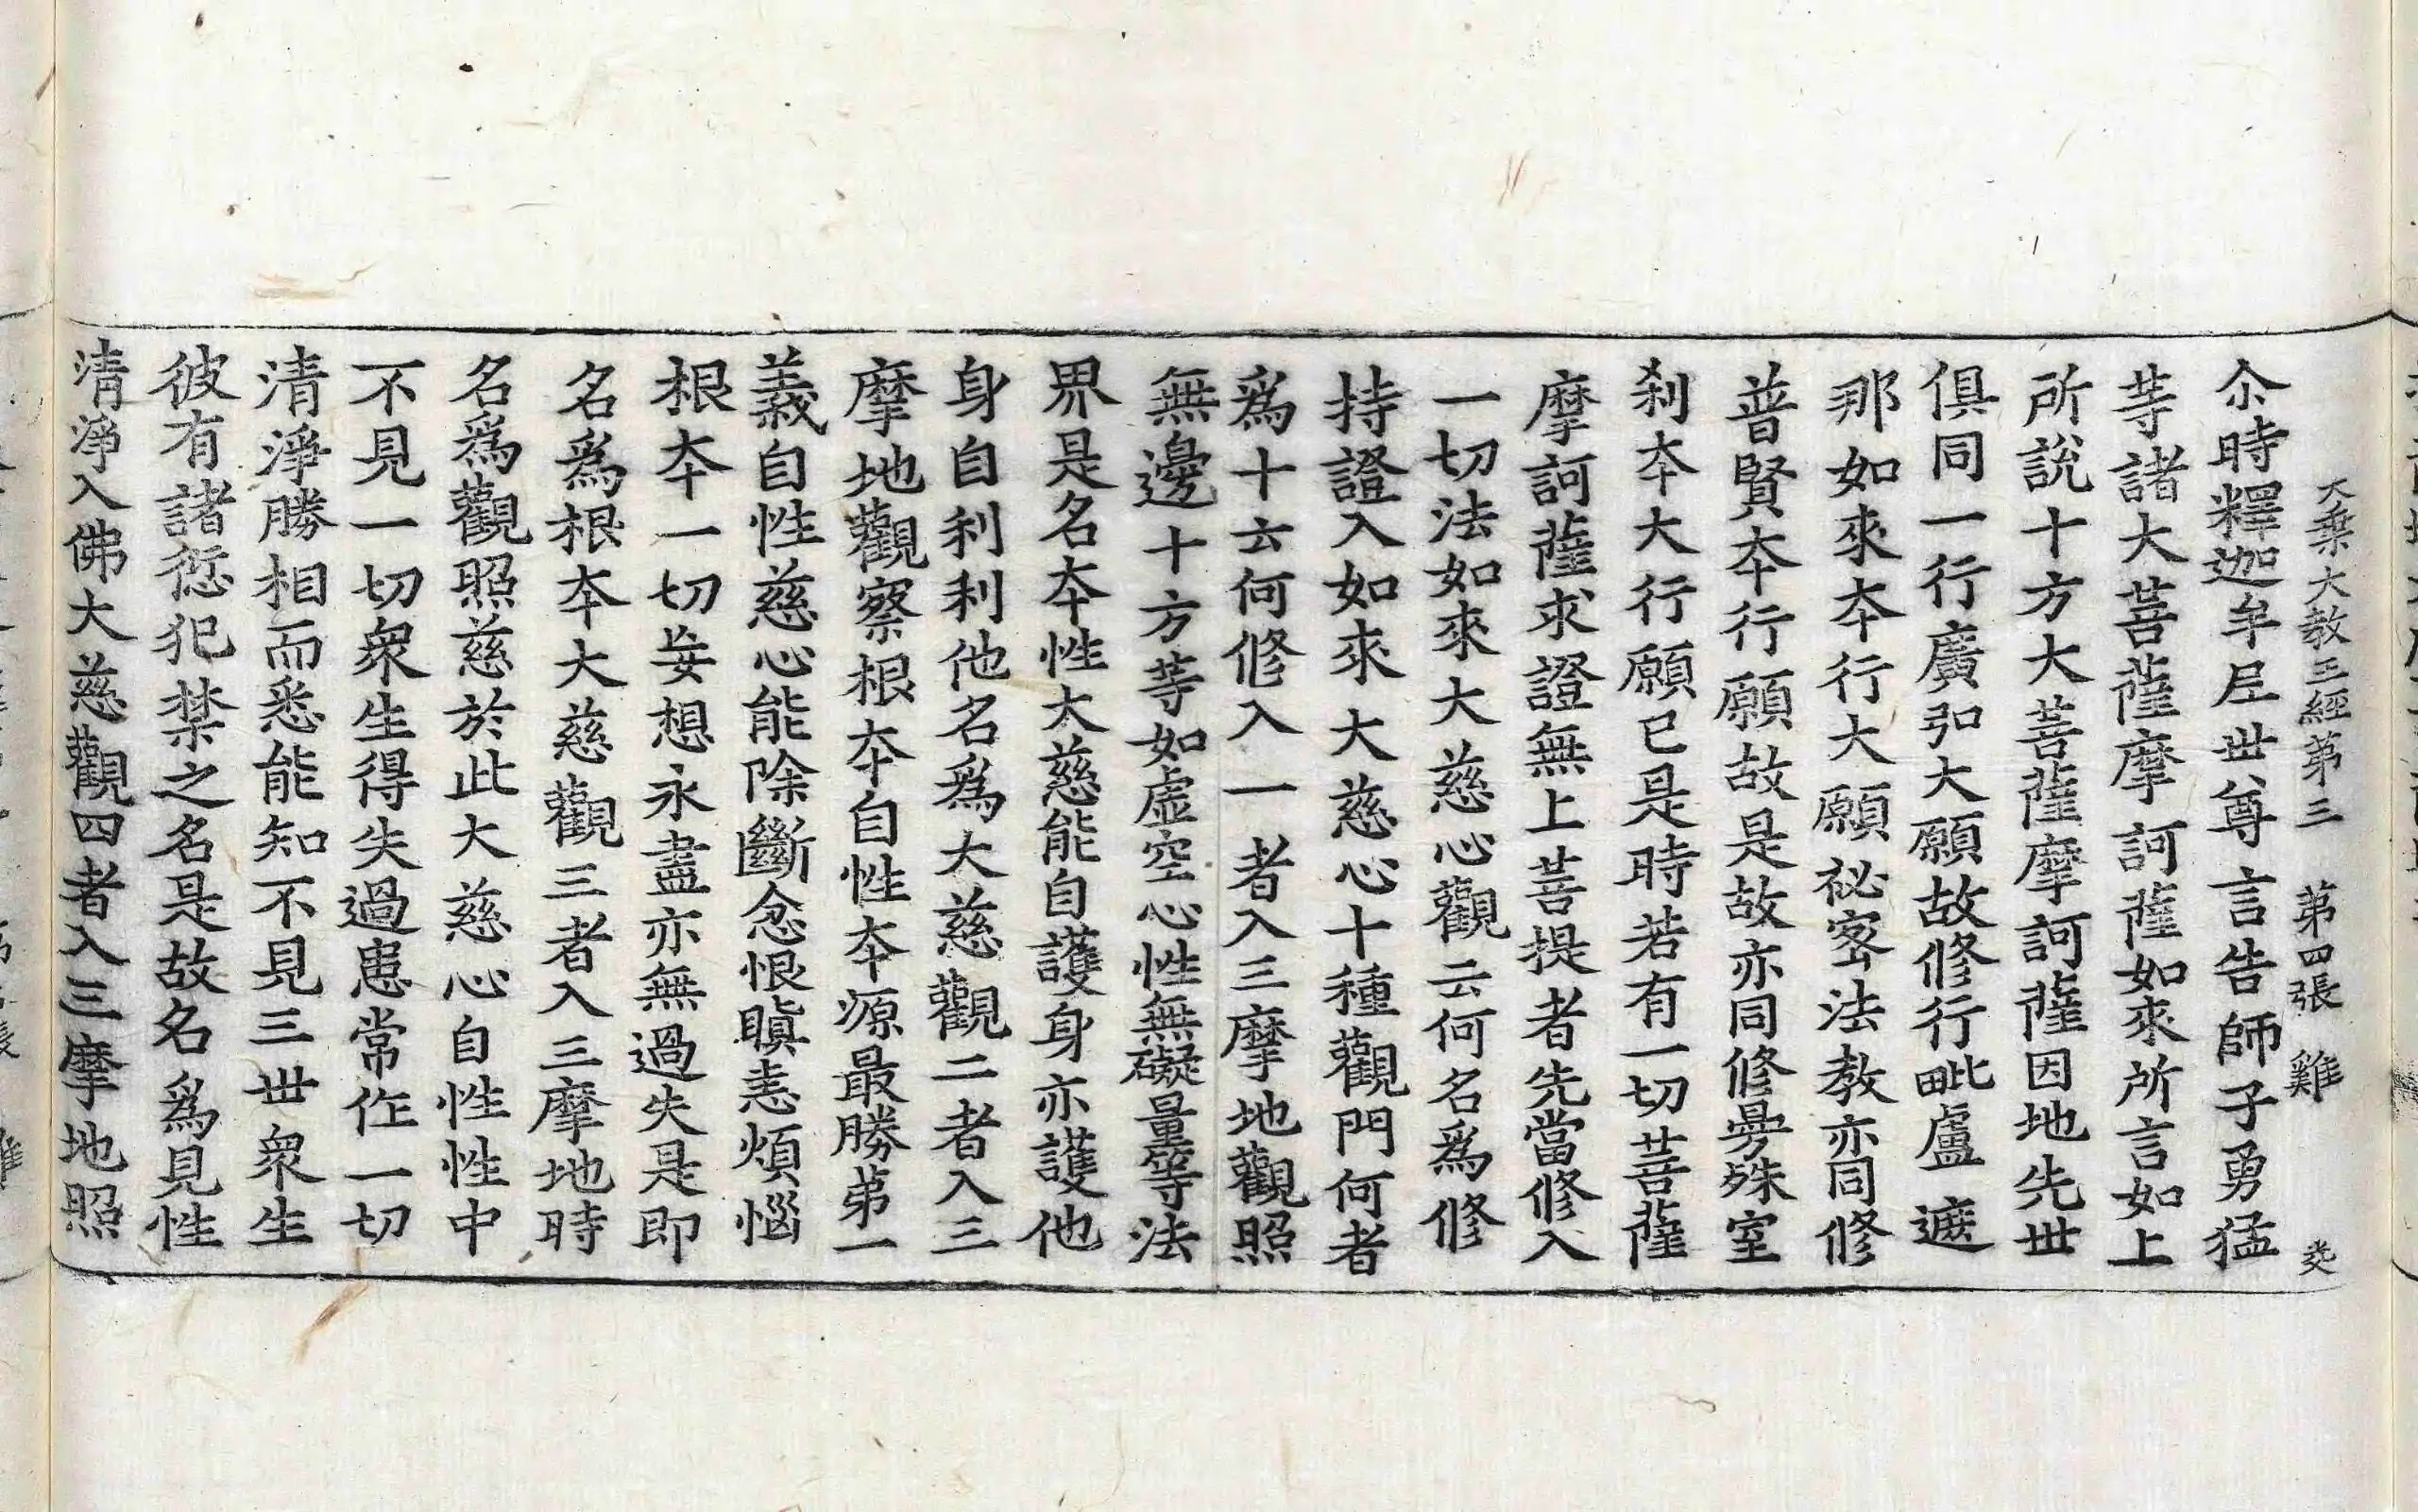 大乗大教王経第三　第四張　雞
尒時釋迦牟尼世尊言告師子勇猛
等諸大菩薩摩訶薩如來所言如上
所說十方大菩薩摩訶薩因地先世
俱同一行廣弘大願故修行毗盧遮
那如來本行大願祕密法教亦同修
普賢本行願故是故亦同修曼殊室
利本大行願已是時若有一切菩薩
摩訶薩求證無上菩提者先當修入
一切法如來大慈心觀云何名爲修
持證入如來大慈心十種觀門何者
爲十云何修入一者入三摩地觀照
無邊十方等如虛空心性無礙量等法
界是名本性大慈能自護身亦護他
身自利利他名爲大慈觀二者入三
摩地觀察根本自性本源最勝第一
義自性慈心能除斷忿恨瞋恚煩惱
根本一切妄想永盡亦無過失是即
名爲根本大慈觀三者入三摩地時
名爲觀照慈於此大慈心自性性中
不見一切衆生得失過患常作一切
清淨勝相而悉能知不見三世衆生
彼有諸愆犯禁之名是故名爲見性
清淨入佛大慈觀四者入三摩地照